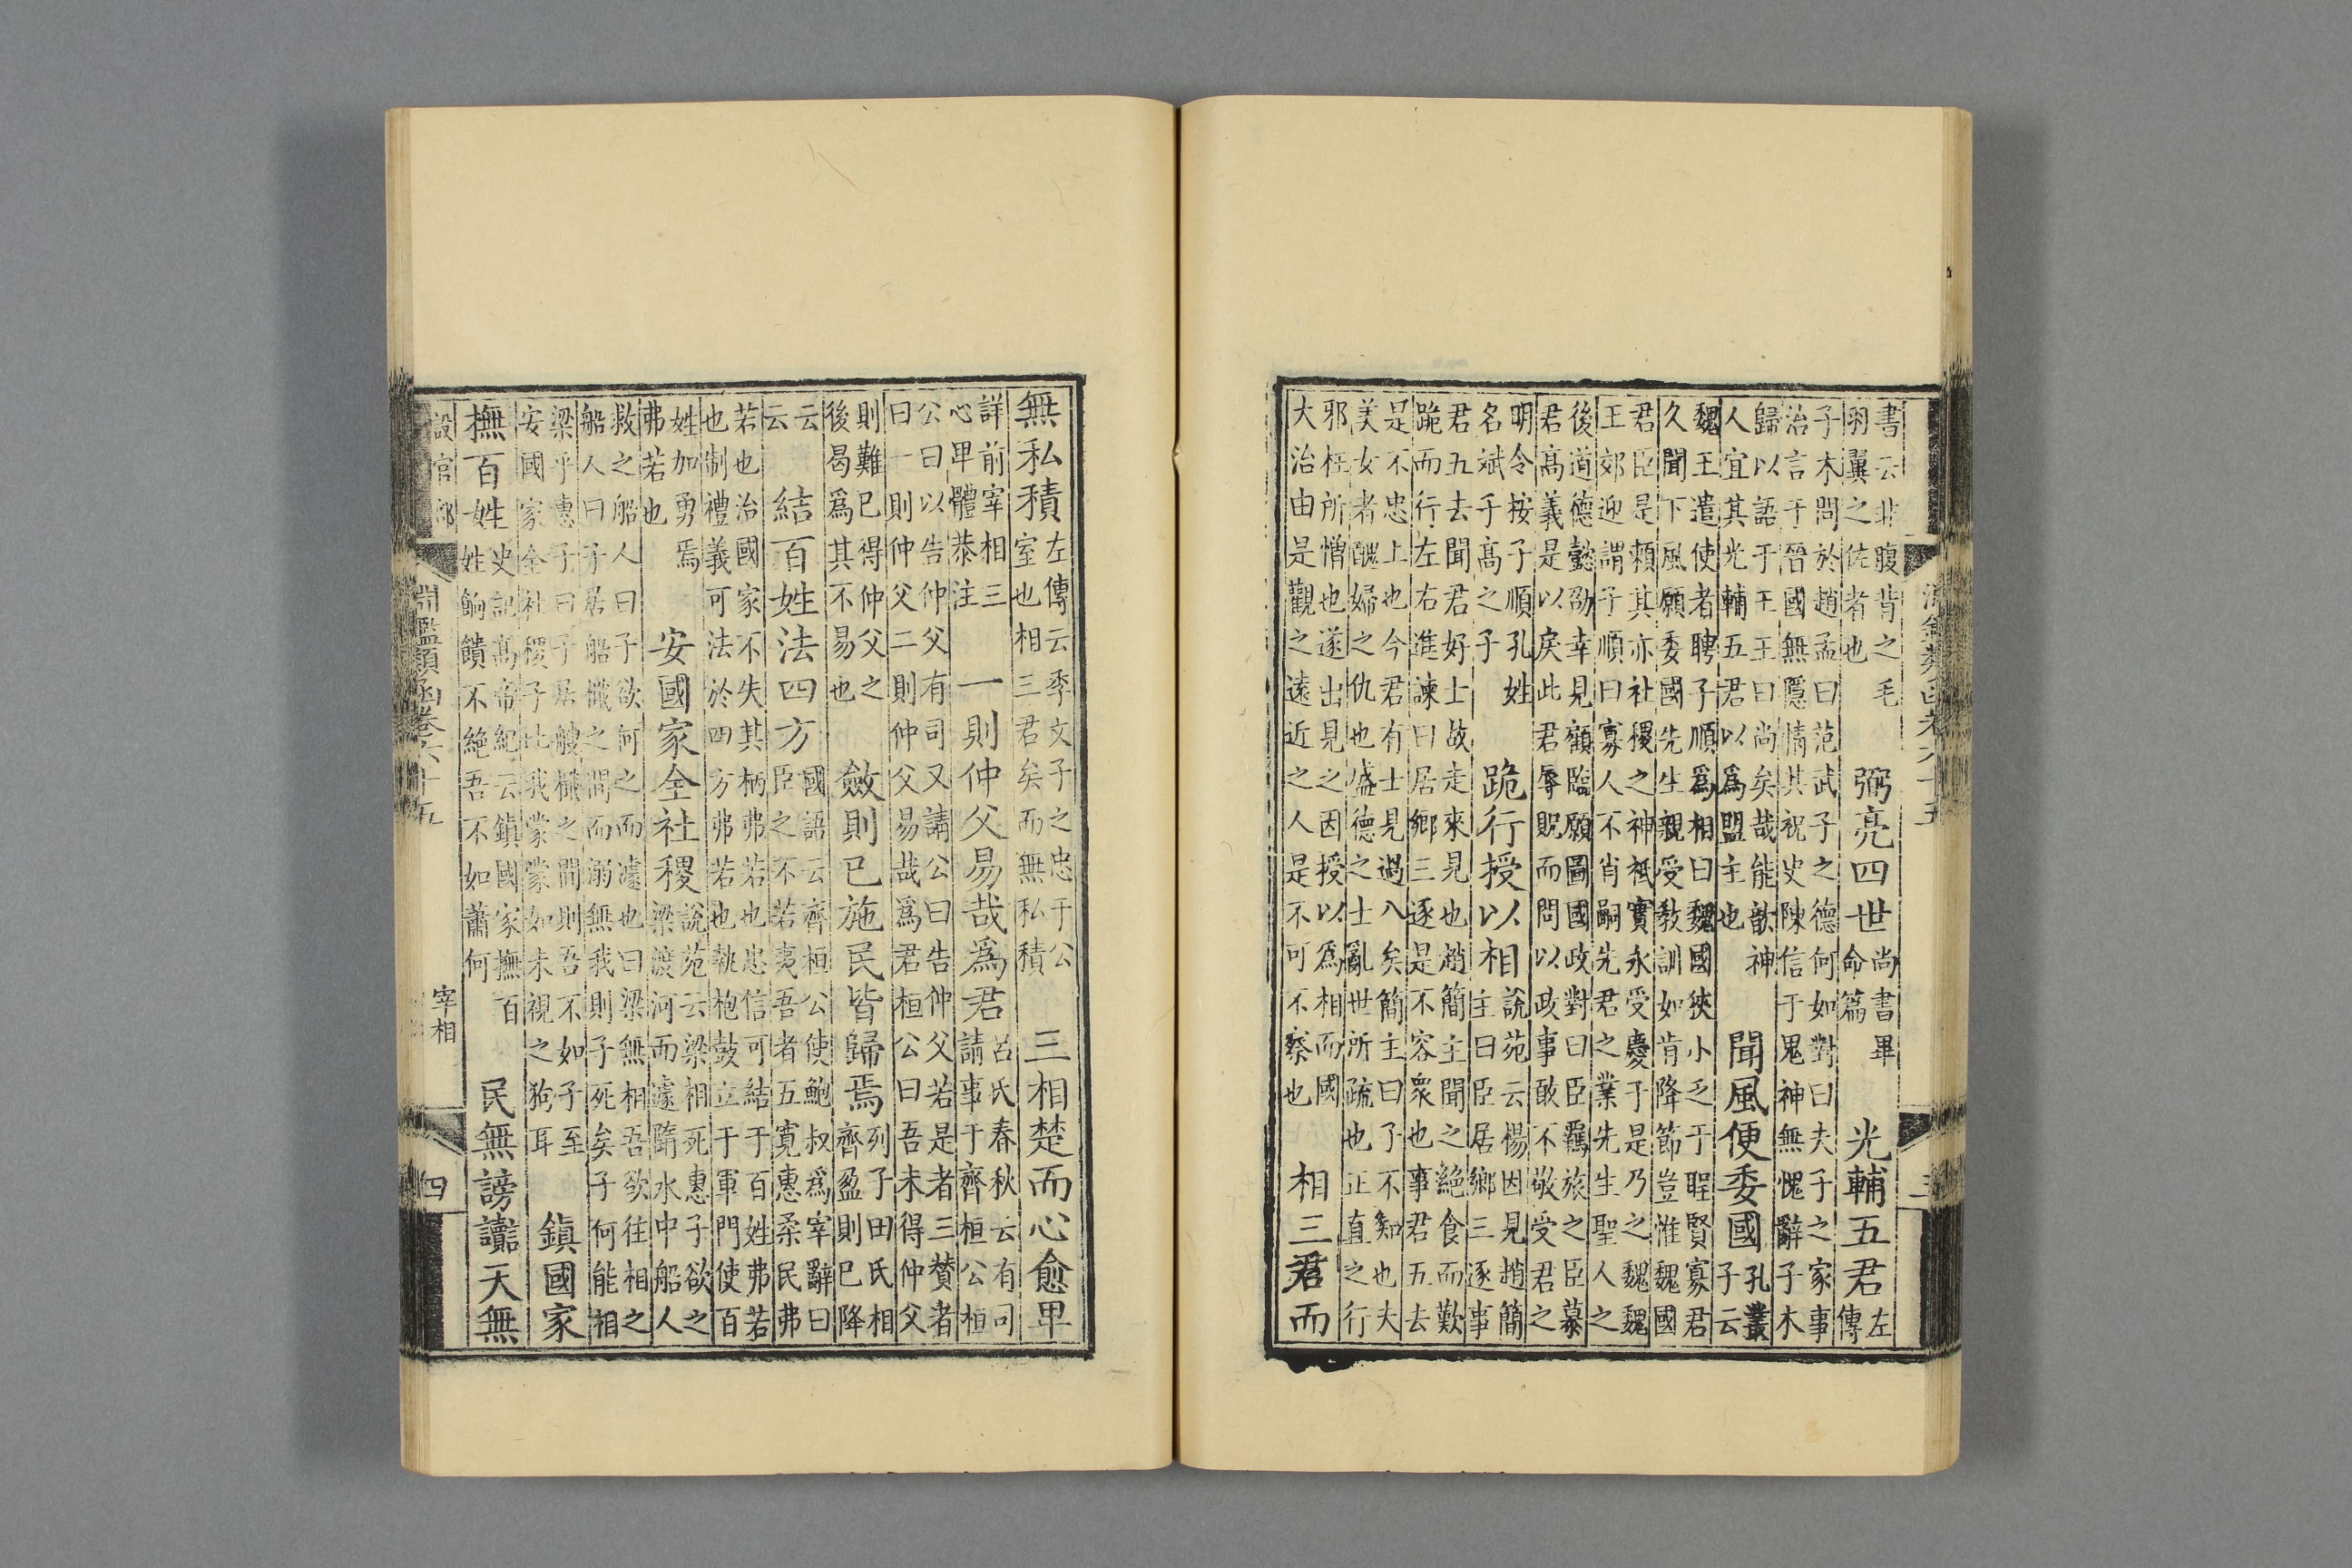 書云非腹背之毛羽翼之佐者也弼亮四世尚書畢命篇光輔五君左傳
子木問於趙孟曰范武子之德何如對曰夫子之家事治言于晉國無隱情其祝史陳信于鬼神無愧辭子木
歸以語于王王曰尚矣哉能歆神人宜其光輔五君以爲盟主也聞風便委國孔叢子云
魏王遣使者聘子順爲相曰魏國狹小乏于聖賢寡君久聞下風願委國先生親受教訓如肯降節豈惟魏國
君臣是賴其亦社稷之神祗實永受慶于是乃之魏魏王郊迎謂子順曰寡人不肖嗣先君之業先生聖人之
後道德懿劭幸見顧臨願圖國政對曰臣羈旅之臣慕君高義是以戾此君辱貺而問以政事敢不敬受君之
明令按子順孔姓名斌子高之子跪行授以相說苑云楊因見趙簡主曰臣居鄉三逐事
君五去聞君好士故走來見也趙簡主聞之絶食而歎跪而行左右進諫曰居鄉三逐是不容衆也事君五去
是不忠上也今君有士見過八矣簡主曰子不知也夫美女者醜婦之仇也盛德之士亂世所疏也正直之行
邪枉所憎也遂出見之因授以爲相而國大治由是觀之遠近之人是不可不察也相三君而
無私積左傳云季文子之忠于公室也相三君矣而無私積三相楚而心愈卑
詳前宰相三心卑體恭注一則仲父易哉爲君呂氏春秋云有司請事于齊桓公桓
公曰以告仲父有司又請公曰告仲父若是者三贊者曰一則仲父二則仲父易哉爲君桓公曰吾未得仲父
則難已得仲父之後曷爲其不易也斂則已施民皆歸焉列子田氏相齊盈則已降
云云結百姓法四方國語云齊桓公使鮑叔爲宰辭曰臣之不若夷吾者五寛惠柔民弗
若也治國家不失其柄弗若也忠信可結于百姓弗若也制禮義可法於四方弗若也執枹鼓立于軍門使百
姓加勇焉弗若也安國家全社稷說苑云梁相死惠子欲之梁渡河而遽隋水中船人
救之船人曰子欲何之而遽也曰梁無相吾欲往相之船人曰子居船檝之間而溺無我則子死矣子何能相
梁乎惠子曰子居艘檝之間則吾不如子至安國家全社稷子比我蒙蒙如未視之狗耳鎮國家
撫百姓史記高帝紀云鎮國家撫百姓餉饋不絶吾不如蕭何民無謗讟天無
設官部
淵鑑類函卷六十五
宰相
四